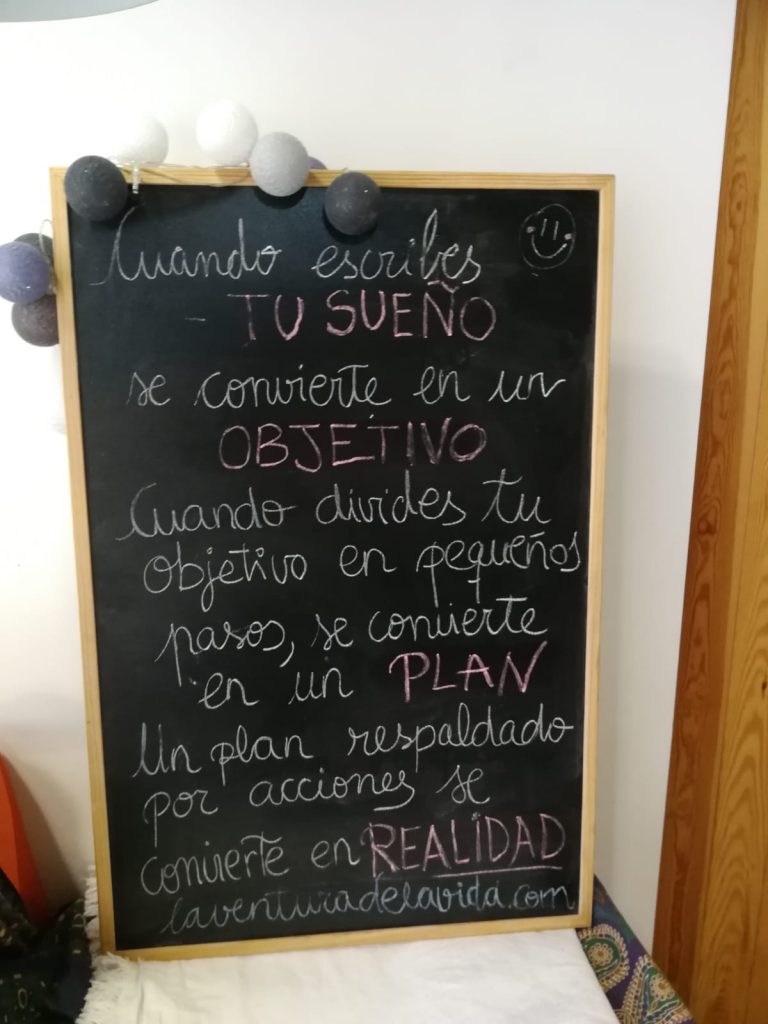 Cuando escribes
- TU SUEÑO
se convierte en un
OBJETIVO
Cuando divides tu
objetivo en pequeños
pasos, se convierte
en un PLAN
Un plan respaldado
por acciones se
convierte en REALIDAD
laventuradelavida.com